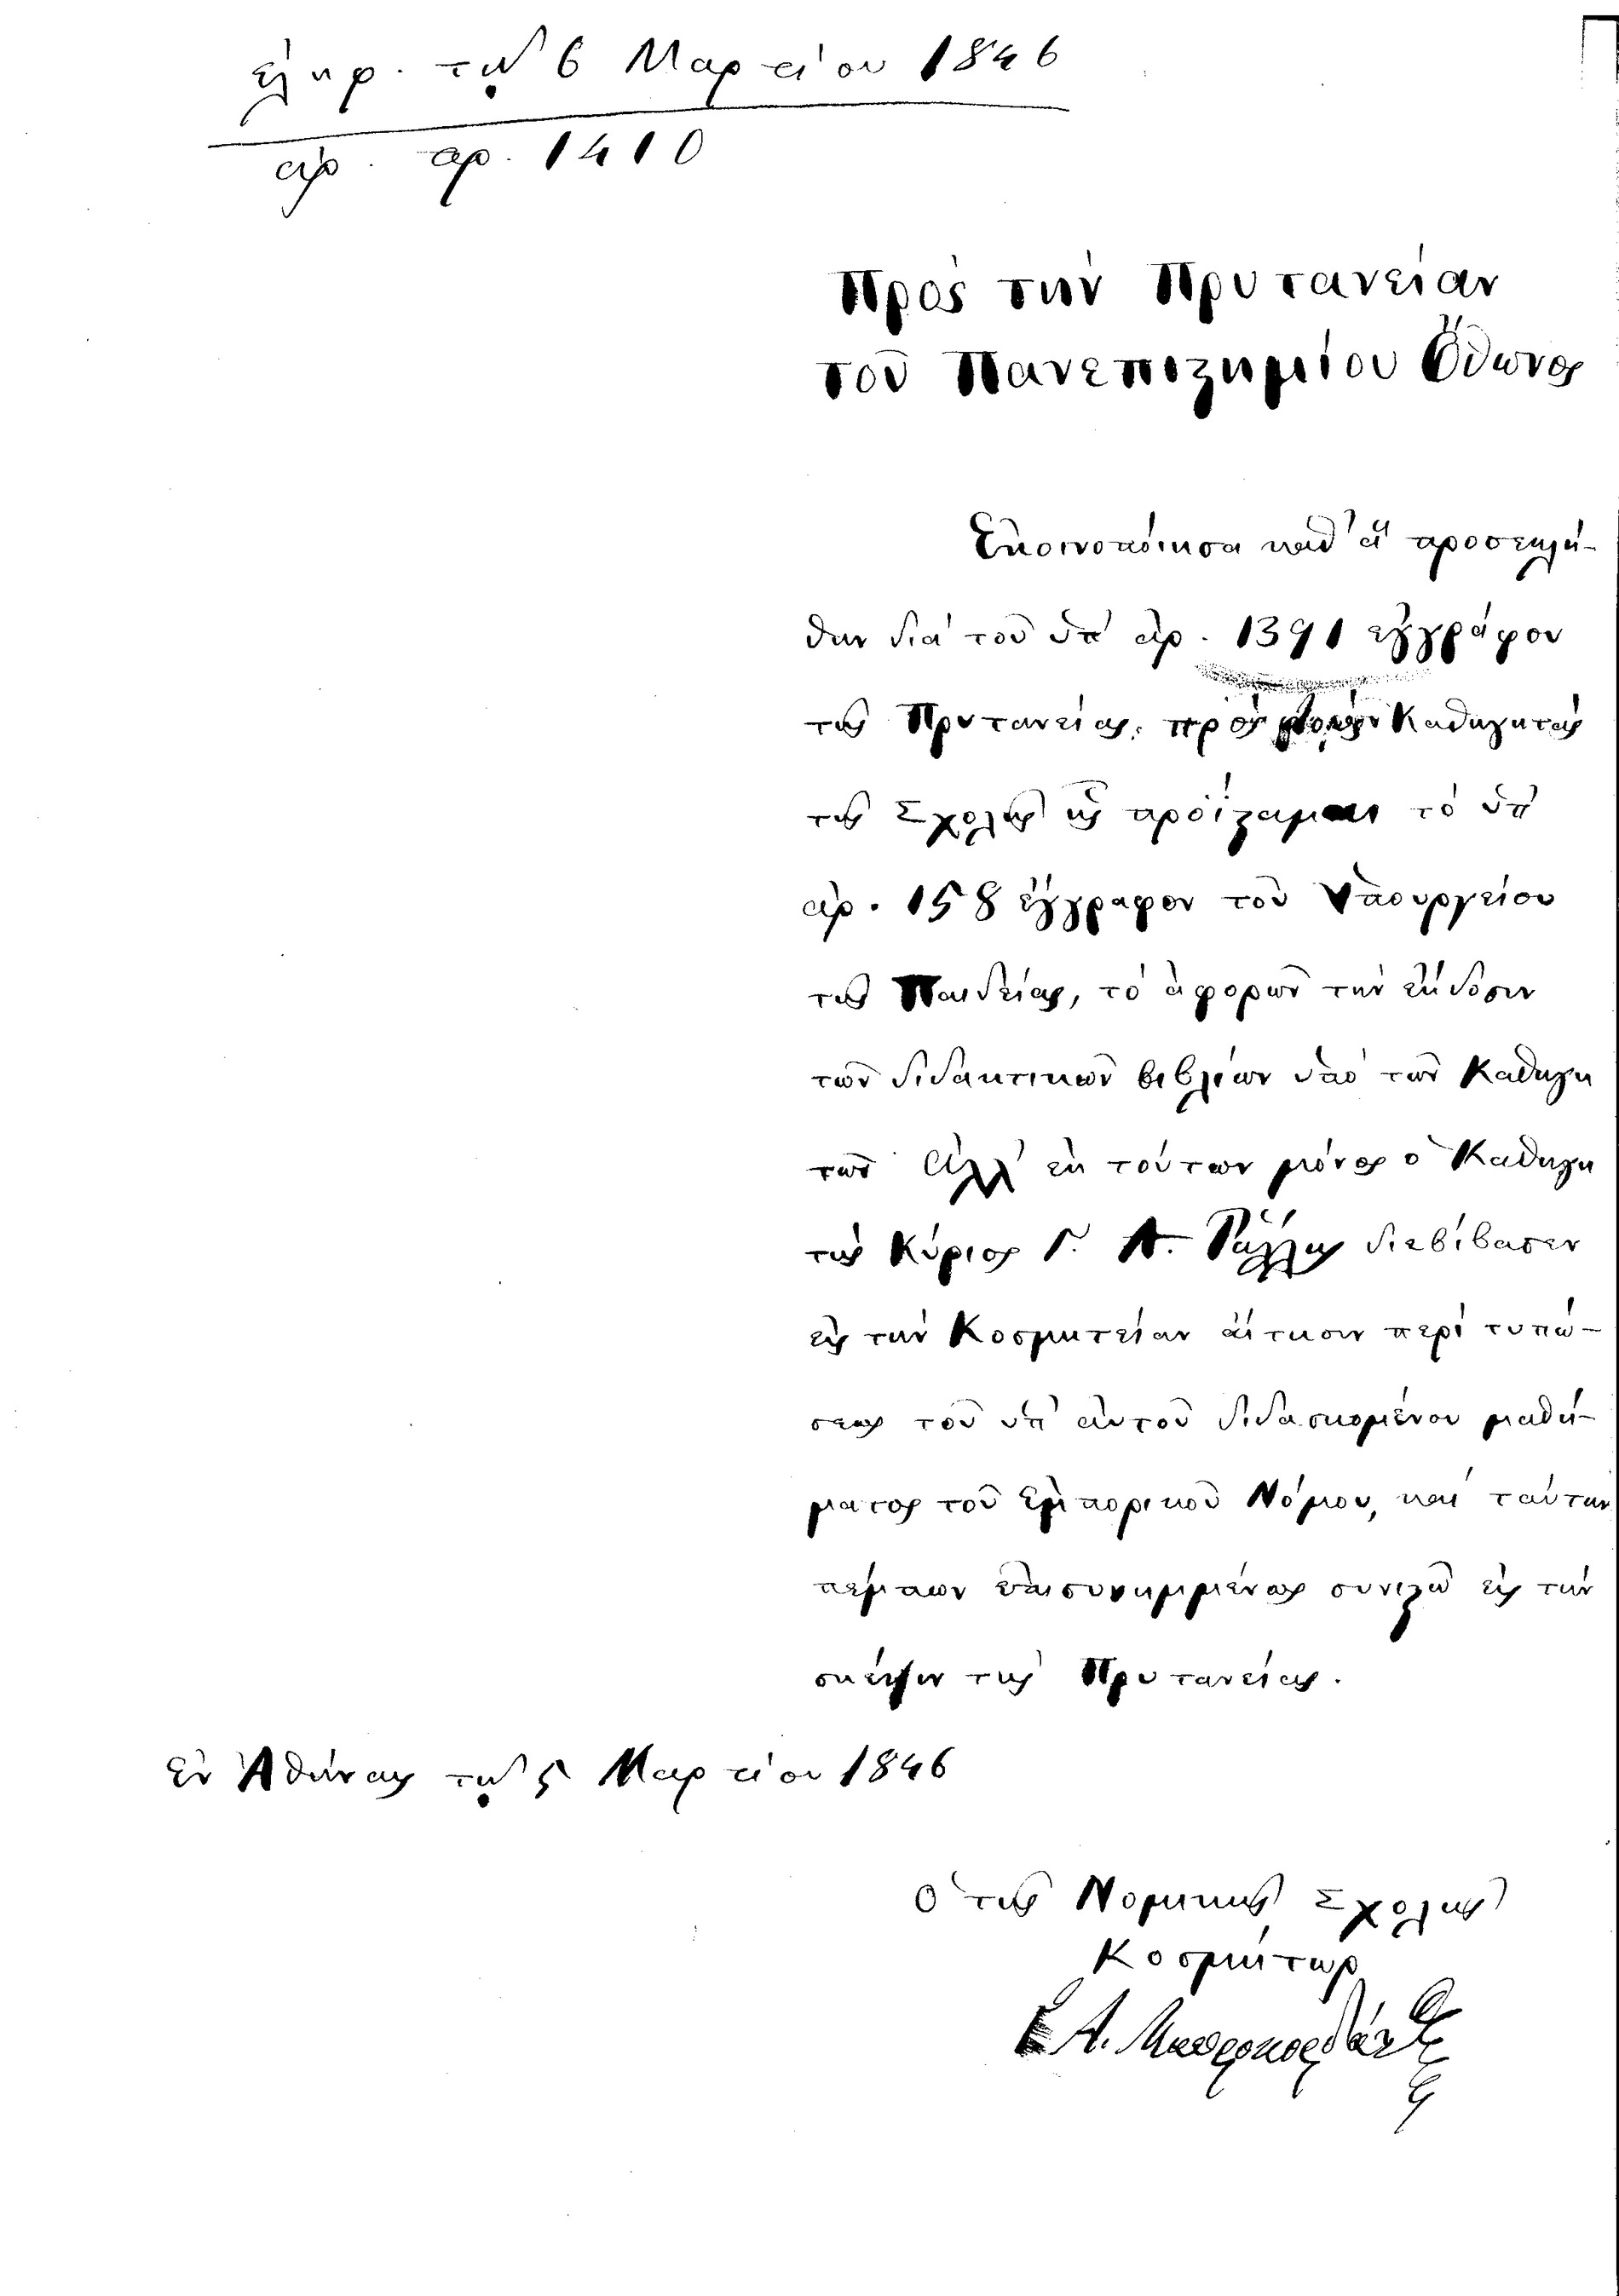 ἐλήφ. τῇ 6 Μαρτίου 1846
ἀρ. πρ. 1410
Πρὸς τὴν Πρυτανείαν
τοῦ Πανεπιστημίου Ὄθωνος
Ἐκοινοποίησα καθ' ἃ προσεκλή-
θην διὰ τοῦ ὑπ' ἀρ. 1391 ἐγγράφου
τῆς Πρυτανείας, πρὸς τοὺς Καθηγητὰς
τῆς Σχολῆς ἧς προΐσταμαι τὸ ὑπ'
ἀρ. 158 ἔγγραφον τοῦ Ὑπουργείου
τῆς Παιδείας, τὸ ἀφορῶν τὴν ἔκδοσιν
τῶν διδακτικῶν βιβλίων ὑπὸ τῶν Καθηγη
τῶν Ἀλλ' ἐκ τούτων μόνος ὁ Καθηγη
τὴς Κύριος Γ. Α. Ῥάλλης διεβίβασεν
εἰς τὴν Κοσμητείαν αἴτησιν περὶ τυπώ-
σεως τοῦ ὑπ' αὐτοῦ διδασκομένου μαθή-
ματος τοῦ Ἐμπορικοῦ Νόμου, καὶ ταύτην
πέμπων ἐπισυνημμένως συνιστῶ εἰς τὴν
σκέψιν τῆς Πρυτανείας.
Ἐν Ἀθήναις τῇ 5 Μαρτίου 1846
Ὁ τῆς Νομικῆς Σχολῆς
Κοσμήτωρ
Α. Μαυροκορδάτος